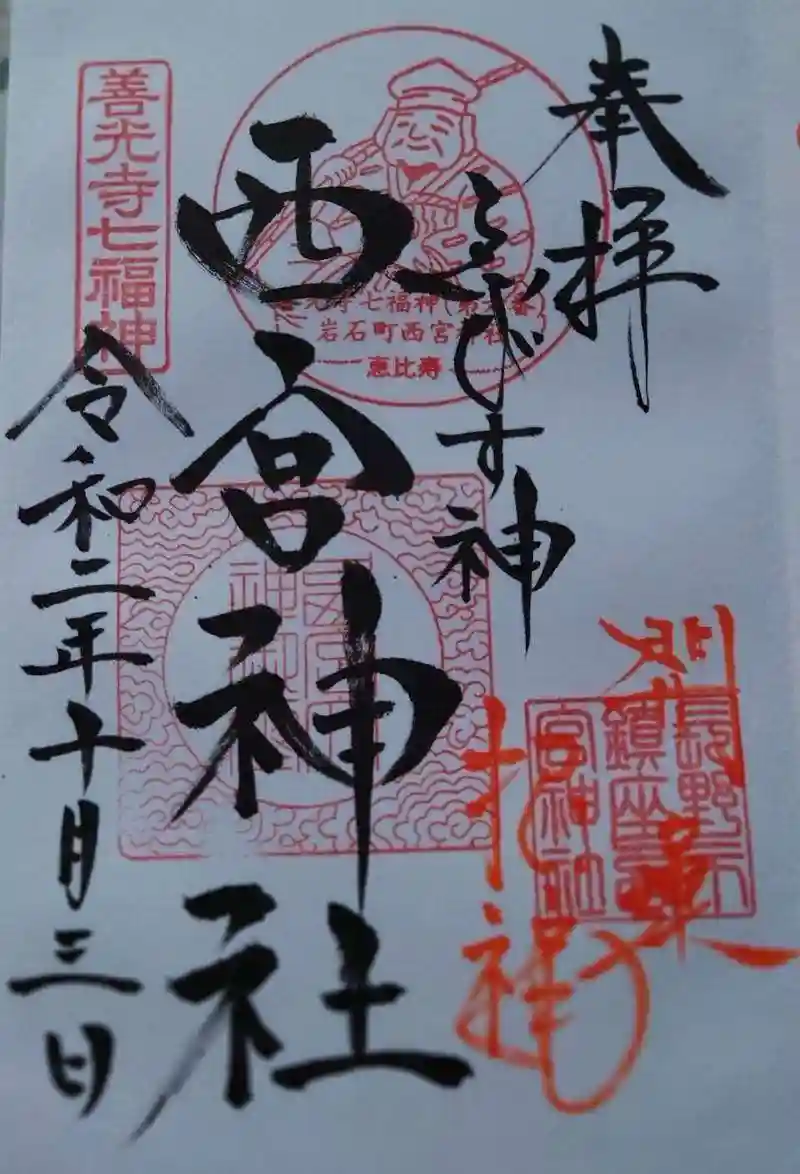 奉拝
えびす神
西宮神社
令和二年十月三日
善光寺七福神
岩石町西宮神社
恵比寿
開業
招福
長野市
鎮座西
宮神社